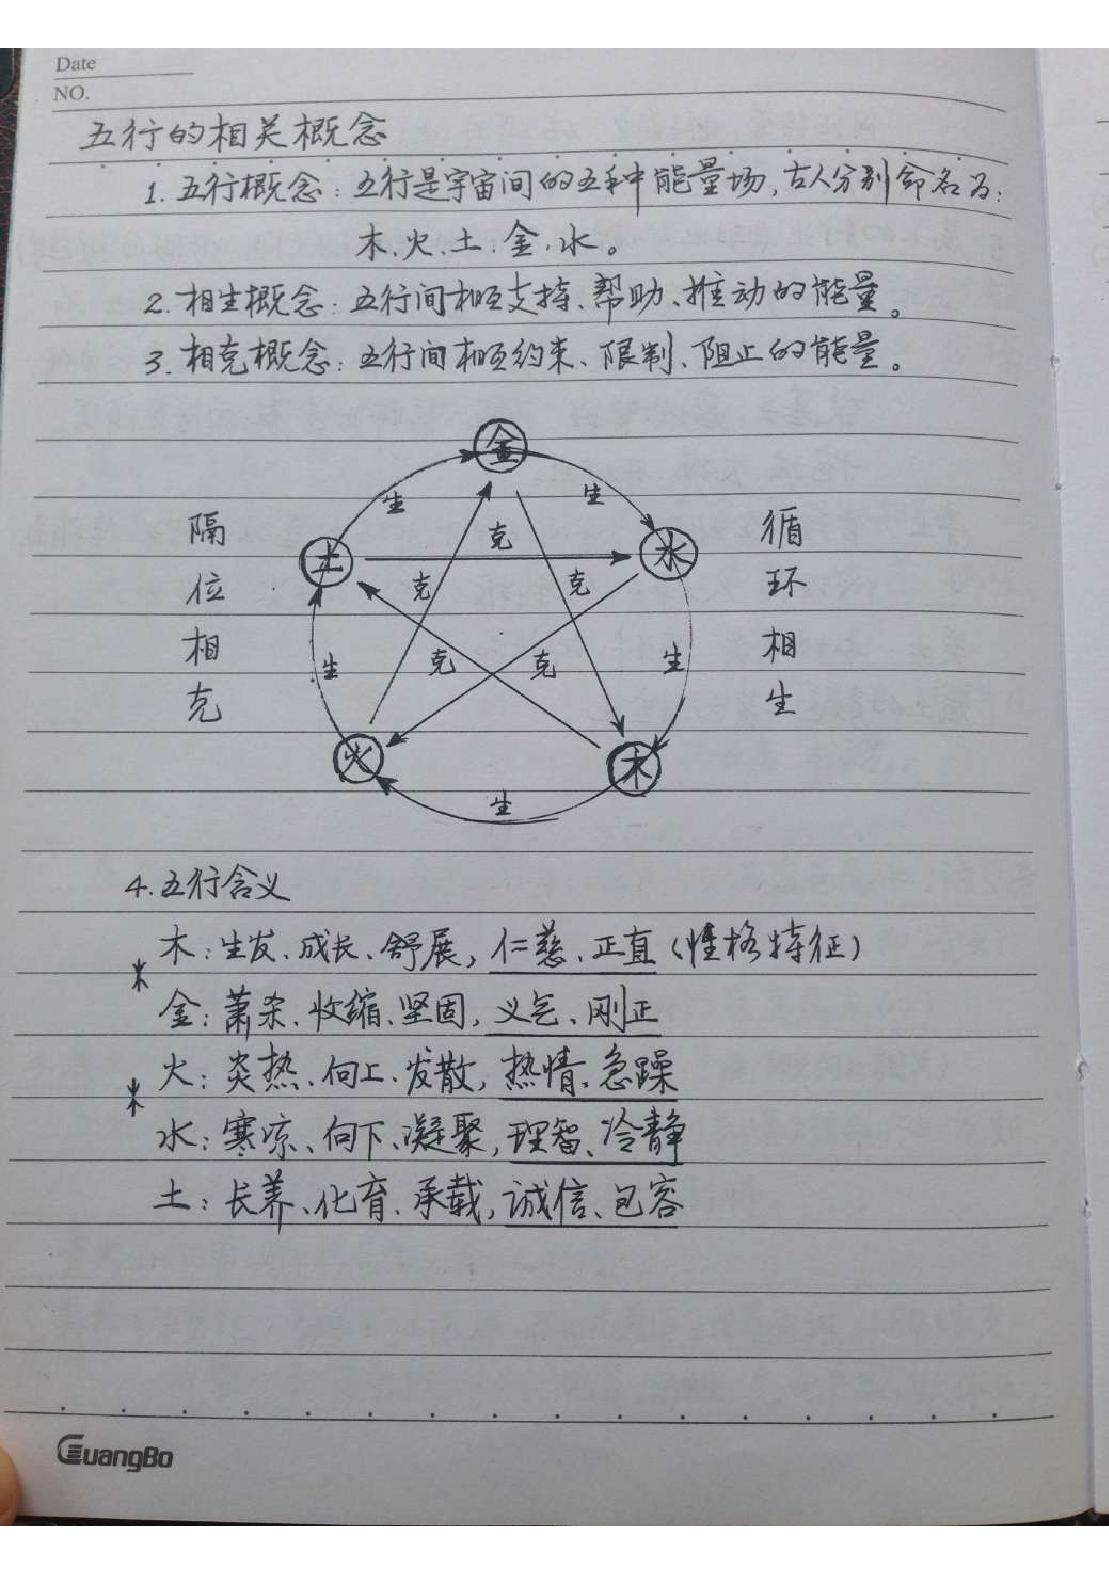 Date
NO.
五行的相关概念
1. 五行概念：五行是宇宙间的五种能量场，古人分别命名为：
木、火、土、金、水。
2. 相生概念：五行间相互支持、帮助、推动的能量。
3. 相克概念：五行间相互约束、限制、阻止的能量。
金
生
生
隔
克
循
土
水
位
克
克
环
相
生
克
克
生
相
克
生
火
木
生
4. 五行含义
木：生发、成长、舒展，仁慈、正直（性格特征）
金：萧杀、收缩、坚固，义气、刚正
火：炎热、向上、发散，热情、急躁
水：寒凉、向下、凝聚，理智、冷静
土：长养、化育、承载，诚信、包容
GuangBo